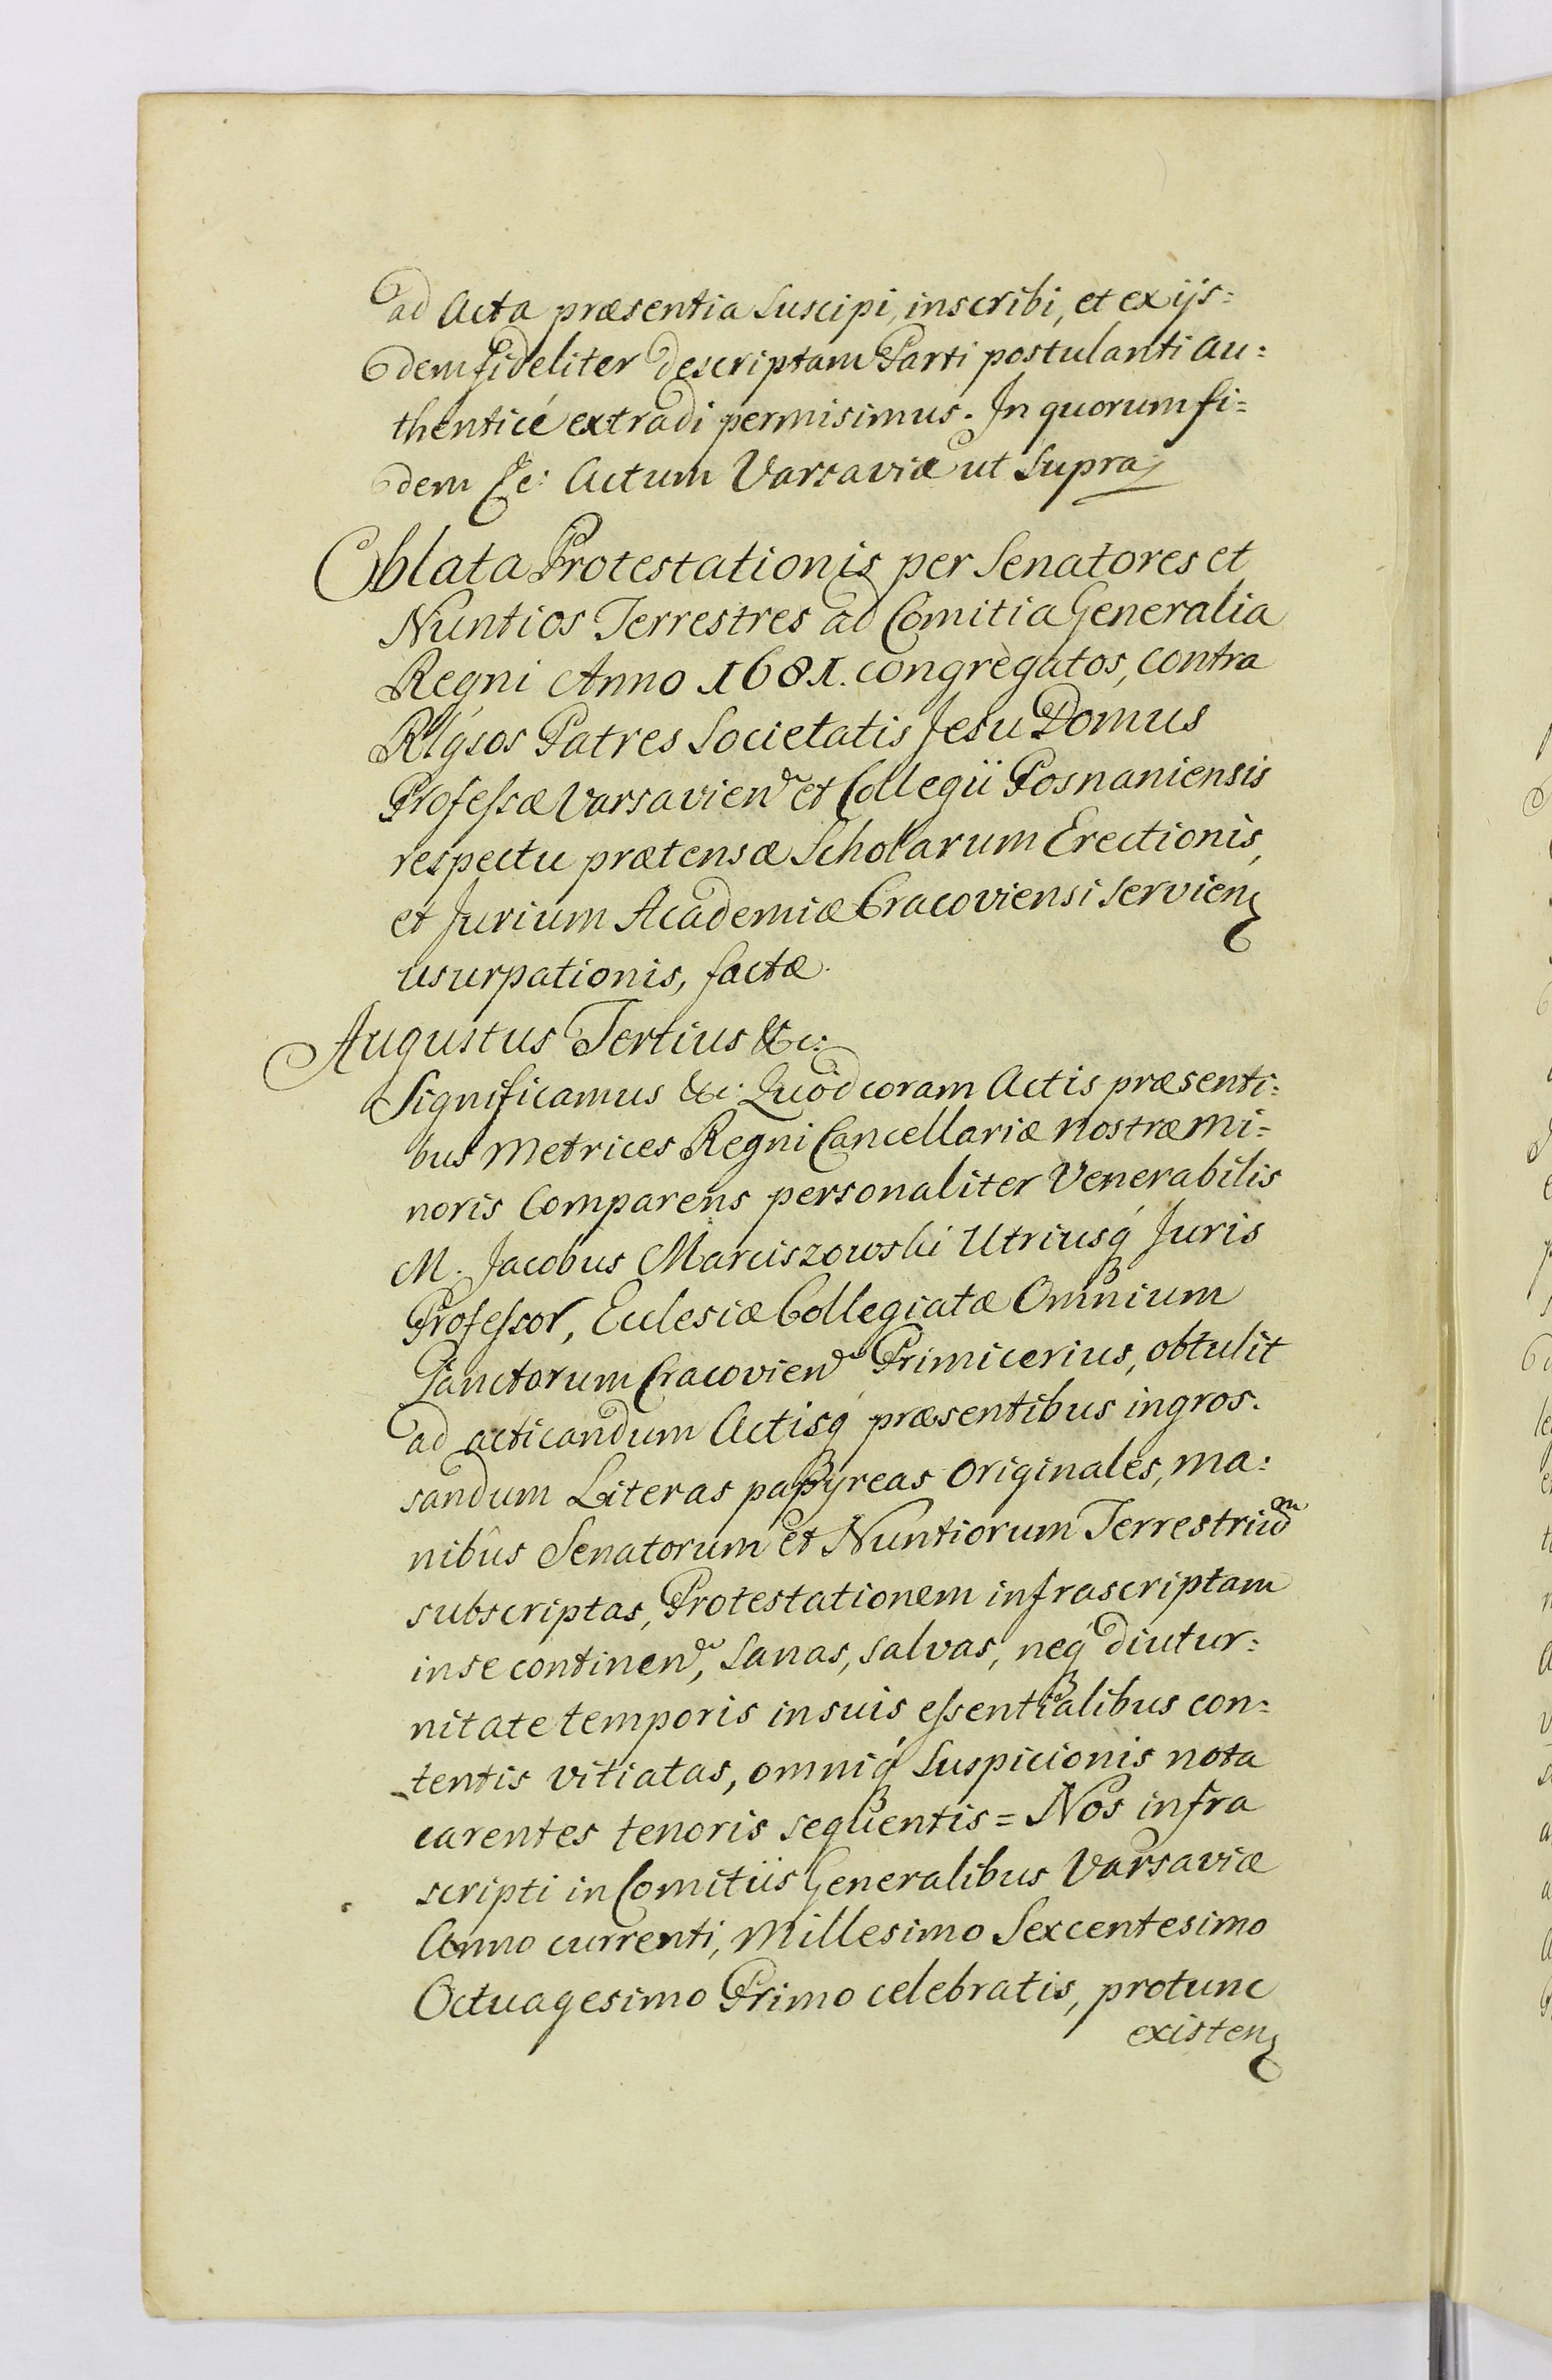 ad Acta præsentia Suscipi, inscribi, et ex ijs=
dem fideliter descriptam Parti postulanti Au=
thenticé extradi permisimus. In quorum fi=
dem &c: Actum Varsaviæ ut Supra
Oblata Protestationis per Senatores et
Nuntios Terrestres ad Comitia Generalia
Regni Anno 1681. congregatos, contra
Rlgsos Patres Societatis Jesu Domus
Professæ Varsavien et Collegii Posnaniensis
respectu prætensæ Scholarum Erectionis,
et Jurium Academiæ Cracoviensi servien
usurpationis, factæ.
Augustus Tertius &c:
Significamus &c: Quòd coram Actis præsenti=
bus Metrices Regni Cancellariæ nostræ Mi=
noris Comparens personaliter Venerabilis
M. Jacobus Marciszowski Utriusq́ Juris
Professor, Eclesiæ Collegiatæ Omnium
Sanctorum Cracovien Primicerius, obtulit
ad acticandum Actisq́ præsentibus ingros=
sandum Literas papyreas Originales, ma=
nibûs Senatorum et Nuntiorum Terrestrium
subscriptas, Protestationem infrascriptam
in se continen, Sanas, salvas, neq́ diutur=
nitate temporis in suis essentialibus con=
tentis vitiatas, omniq́ Suspicionis nota
carentes tenoris sequentis = Nos infra
scripti in Comitiis Generalibus Varsaviæ
Anno currenti, Millesimo Sexcentesimo
Octuagesimo Primo celebratis, protunc
existen